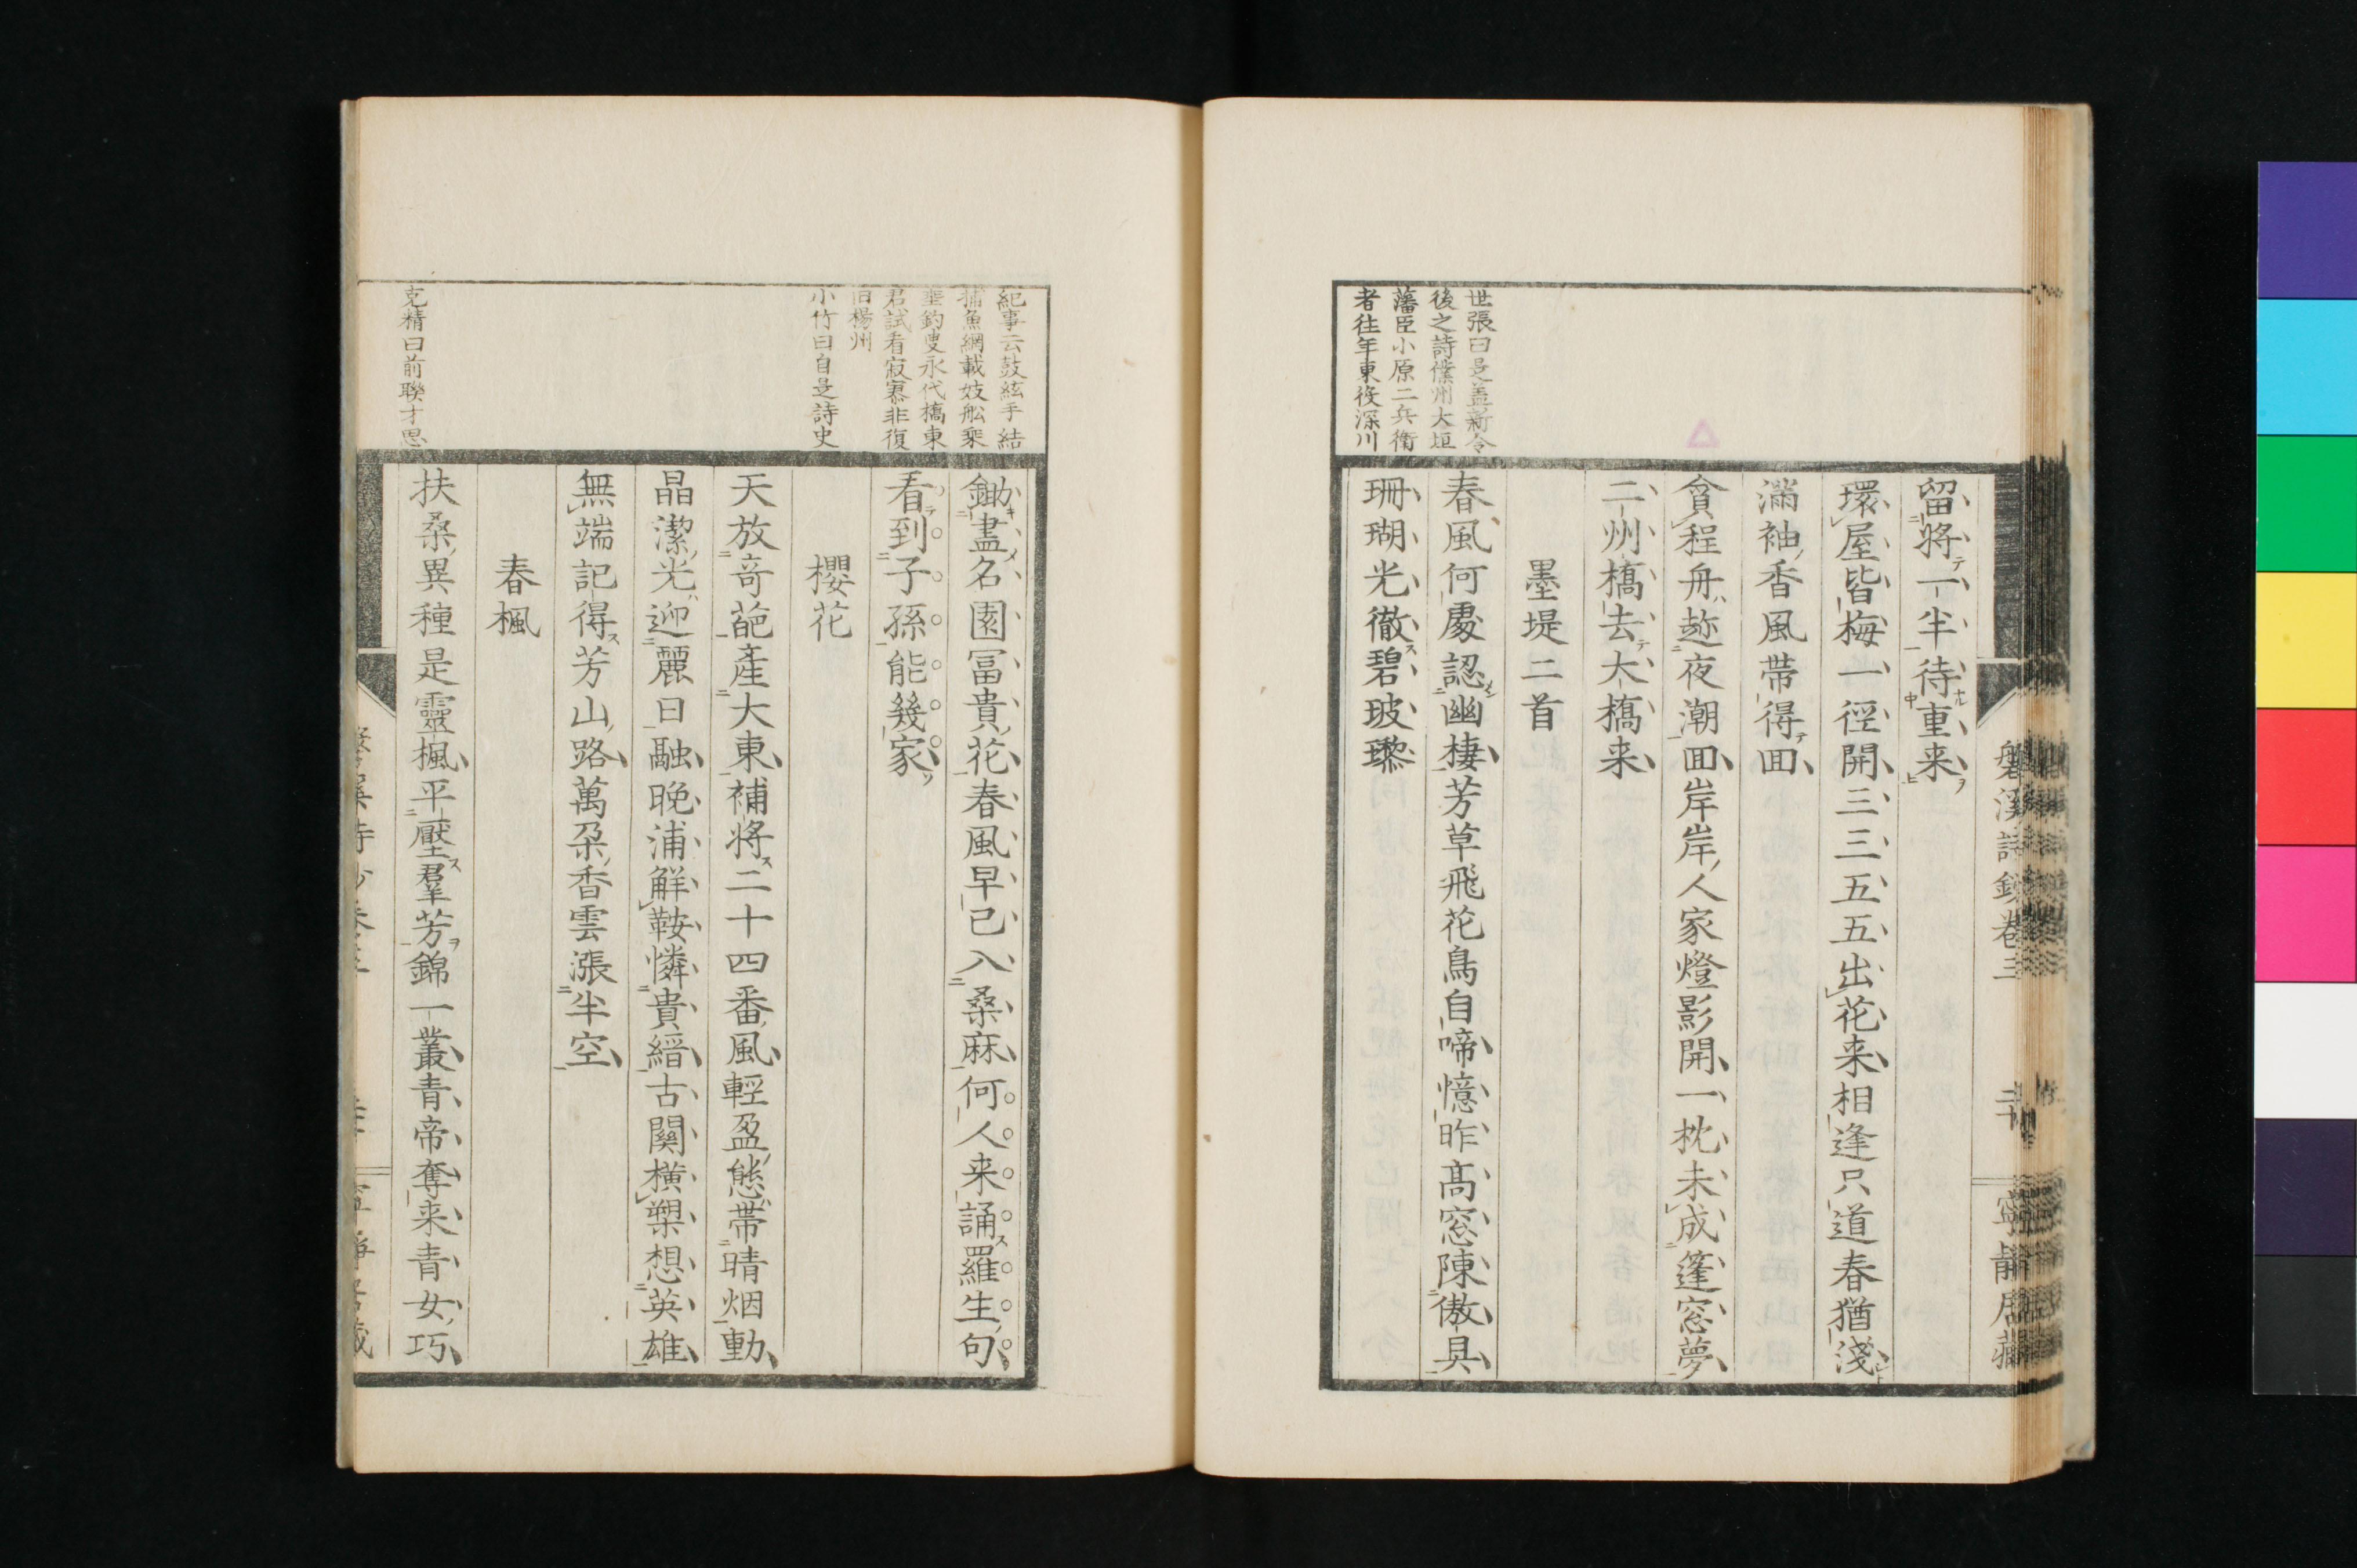 世張曰是盖新令
後之詩濮州大垣
藩臣小原二兵衛
者往年東役深川
留將一半待重来
環屋皆梅一徑開三三五五出花来相逢只道春猶淺
滿袖香風帶得回
貪程舟趂夜潮回岸岸人家燈影開一枕未成篷窓夢
二州橋去大橋来
墨堤二首
春風何處認幽棲芳草飛花鳥自啼憶昨高窓陳傲具
珊瑚光徹碧玻瓈
磐溪詩鈔卷三
寧靜居藏
紀事云鼓絃手結
捕魚網載妓舩乘
垂釣叟永代橋東
君試看寂寞非復
旧楊州
小竹曰自是詩史
克精曰前聯才思
鋤盡名園冨貴花春風早已入桑麻何人来誦羅生句
看到子孫能幾家
櫻花
天放奇葩產大東補將二十四番風輕盈態帶晴烟動
晶潔光迎麗日融晚浦觧鞍憐貴縉古關橫槊想英雄
無端記得芳山路萬朶香雲漲半空
春楓
扶桑異種是靈楓平壓羣芳錦一叢青帝奪来青女巧